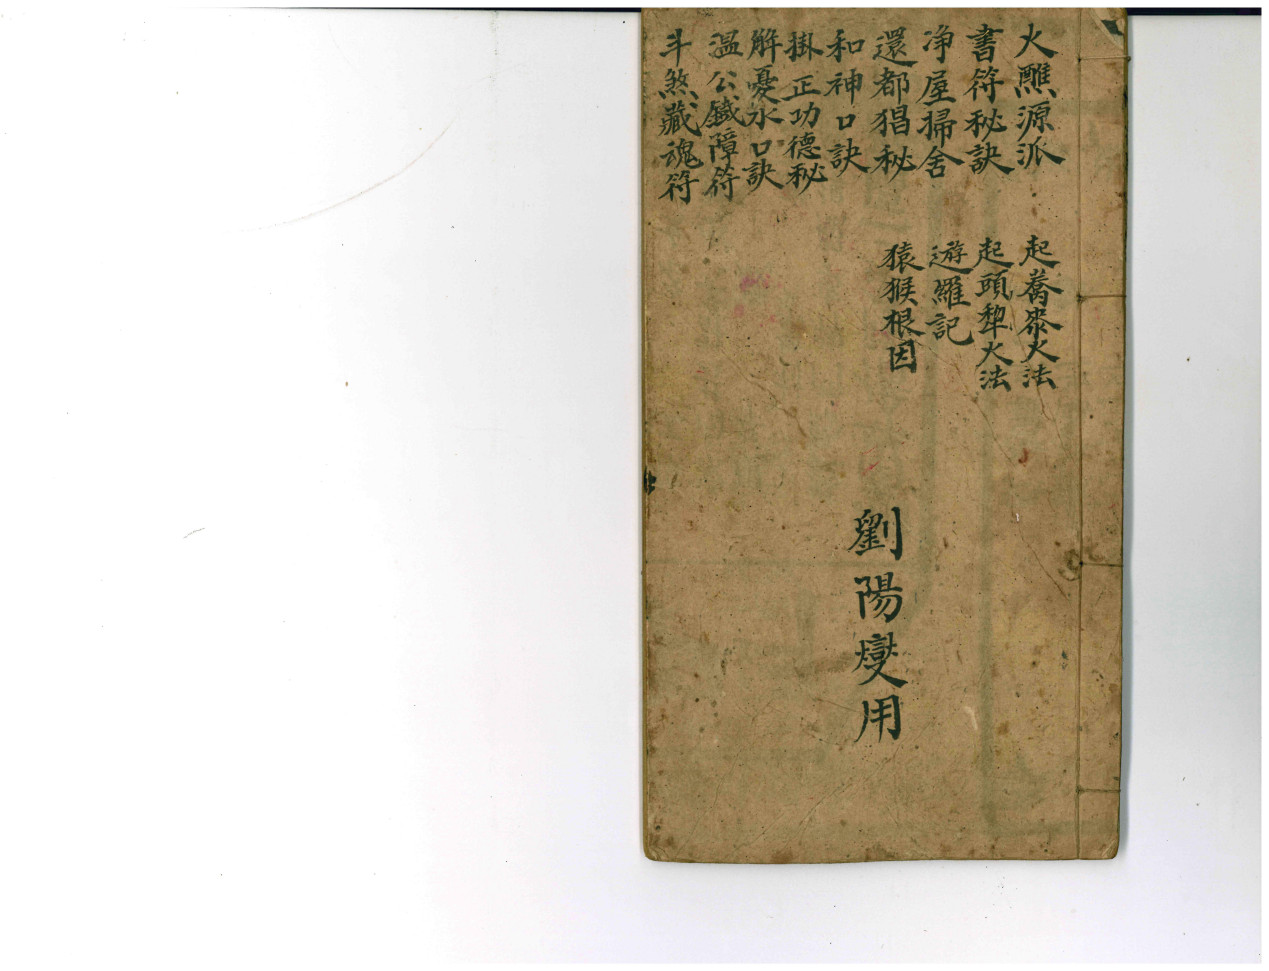 火醮源派
書符秘訣
净屋掃舍
還都猖秘
和神口訣
掛正功德秘
解憂水口訣
温公鐵障符
斗煞藏魂符
起蕎麥火法
起頭犂火法
遊羅記
猿猴根因
劉陽燮用